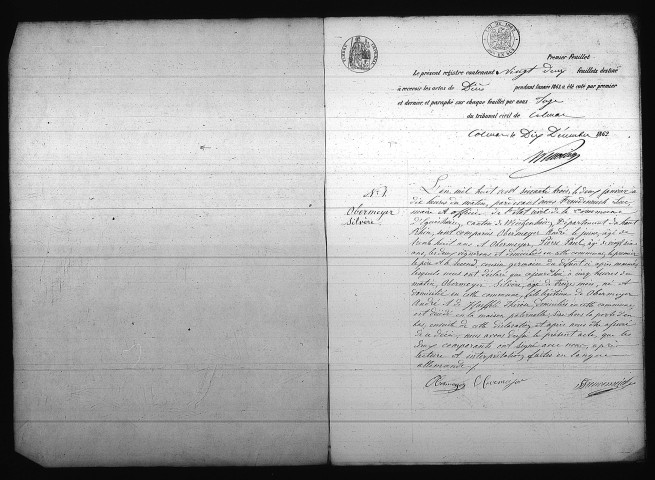 Premier Feuillet
Le présent registre contenant vingt deux feuillets destiné
à recevoir les actes de Décès pendant l'année 1863, a été coté par premier
et dernier, et paraphé sur chaque feuillet par nous Juge
du tribunal civil de Colmar
Colmar le Dix Décembre 1862
N° 1.
Obermeyer
Silvère
L'an mil huit cent soixante trois, le deux janvier à
dix heures du matin, pardevant nous
maire et officier de l'état civil de la commune
d'Eguisheim, canton de Wintzenheim, Département du Haut
Rhin, sont comparus Obermeyer André le jeune, âgé de
trente huit ans et Obermeyer Pierre Paul, âgé de vingt
ans, les deux vignerons et domiciliés en cette commune, le premier
le père et le second, cousin germain du défunt ci après nommé,
lesquels nous ont déclaré que aujourd'hui à cinq heures du
matin, Obermeyer Silvère, âgé de treize mois, né et
domicilié en cette commune, fils légitime de Obermeyer
André et de Thérèse, domiciliés en cette commune
est décédé en la maison paternelle, sise dans la porte d'en
bas, ensuite de cette déclaration et après nous être assuré
de ce décès, nous avons dressé le présent acte, que les
deux comparants ont signé avec nous, après
lecture et interprétation faites en langue
allemande.
Obermeyer Obermeyer